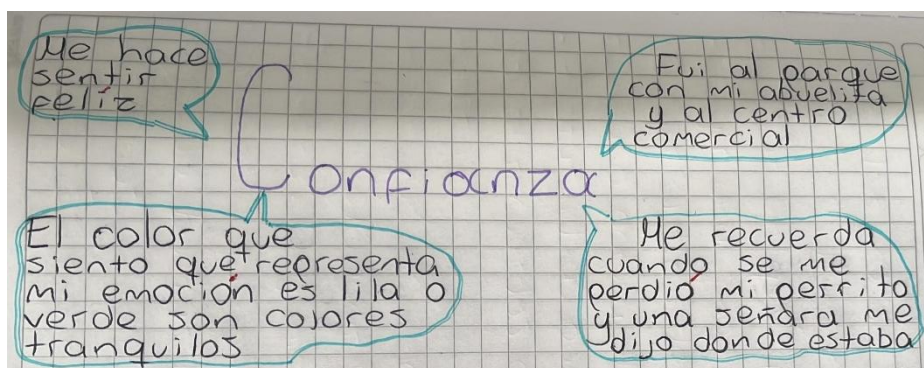 Me hace
sentir
feliz
Fui al parque
con mi abuelita
y al centro
comercial
Confianza
El color que
siento que representa
mi emoción es lila o
verde son colores
tranquilos
Me recuerda
cuando se me
perdió mi perrito
y una señora me
dijo donde estaba